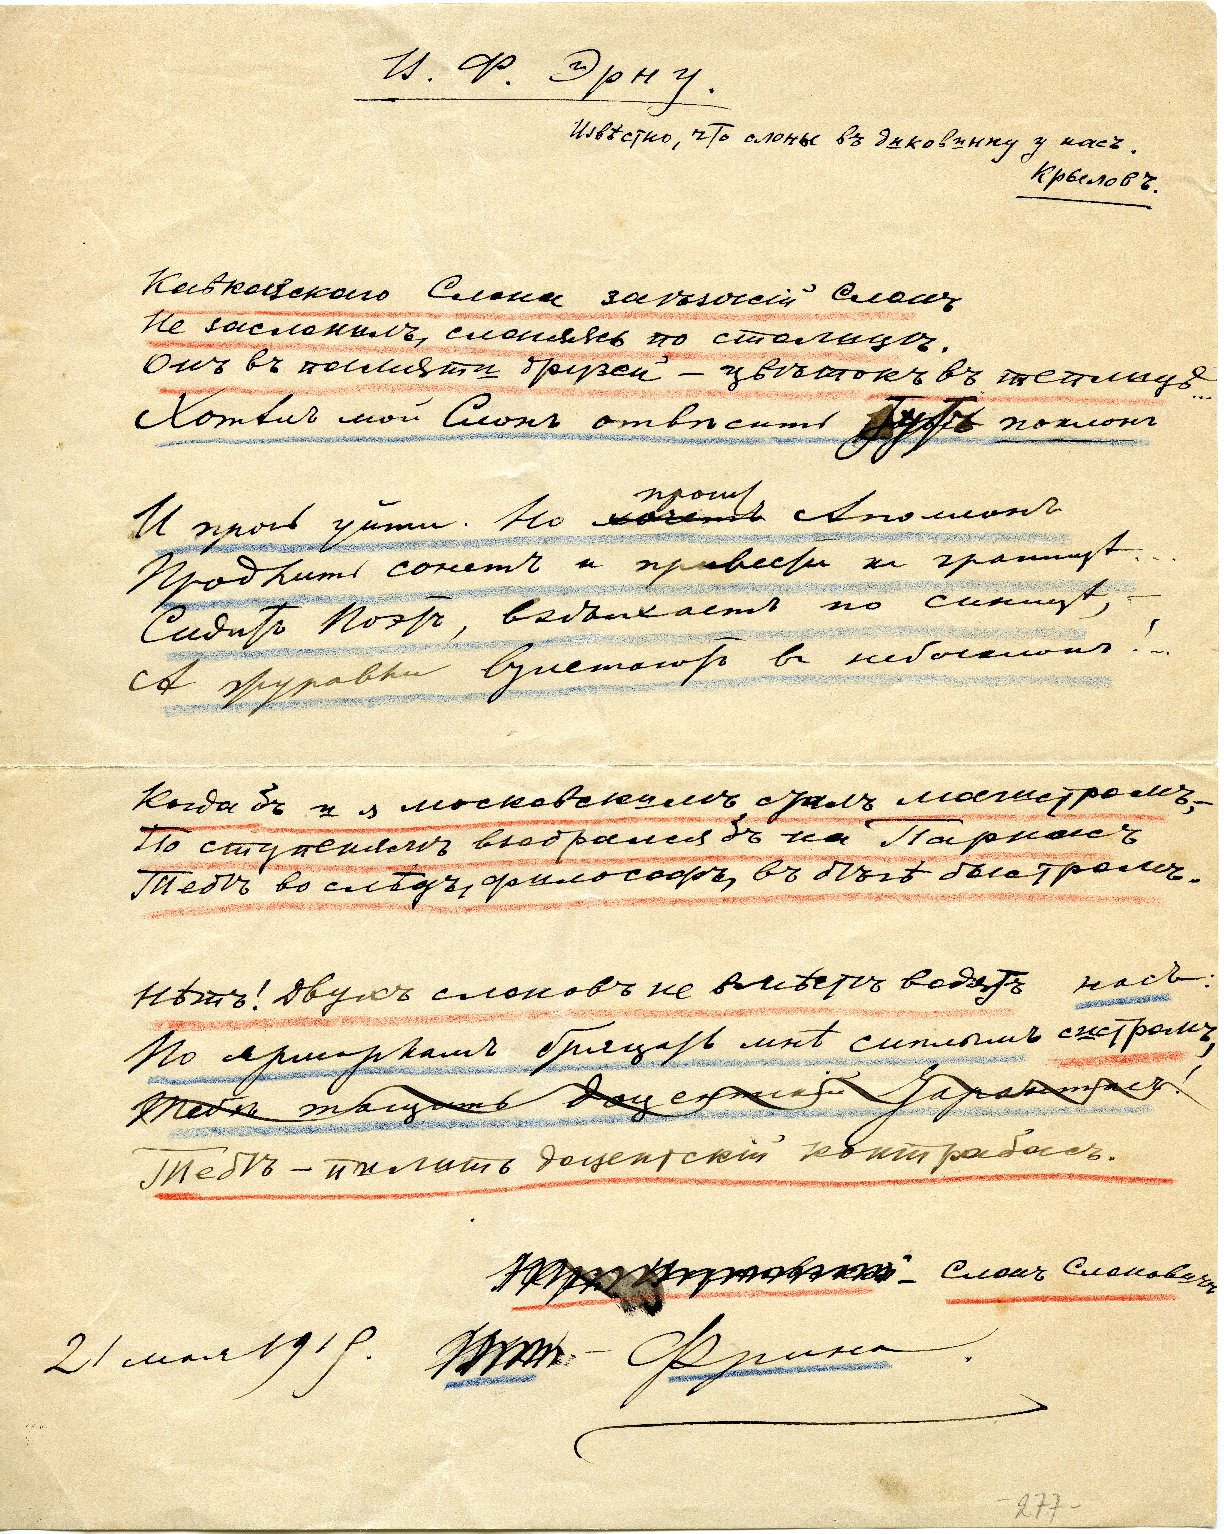 И. Ф. Эрну.
Извѣстно, что слоны въ диковинку у насъ.
Крыловъ.
Кавказскаго Слона заѣзжій Слонъ
Не заслонилъ, слоняясь по столицѣ.
Онъ въ памяти друзей – цвѣтокъ въ теплицѣ...
Хотѣлъ мой Слонъ отвѣсить поклонъ
И прочь уйти. Но
прош
хочетъ Аполлонъ
Продлить сонетъ и привести къ границѣ...
Сидитъ Поэтъ, вздыхаетъ по синицѣ, –
А журавли взлетаютъ въ небосклонъ!..
Когда бъ и я московскимъ сталъ магистромъ, –
По ступенямъ взобрался бъ на Парнасъ
Тебѣ во слѣдъ, философъ, въ бѣгѣ быстромъ.
Нѣтъ! Двухъ слоновъ не вмѣстѣ водятъ насъ:
По ярмаркамъ бряцать мнѣ сиплымъ систромъ,
Тебѣ тащить доцентскій
Тебѣ – пилить доцентскій контрабасъ.
– Слонъ Слоновичъ
21 мая 1915. –
-277-